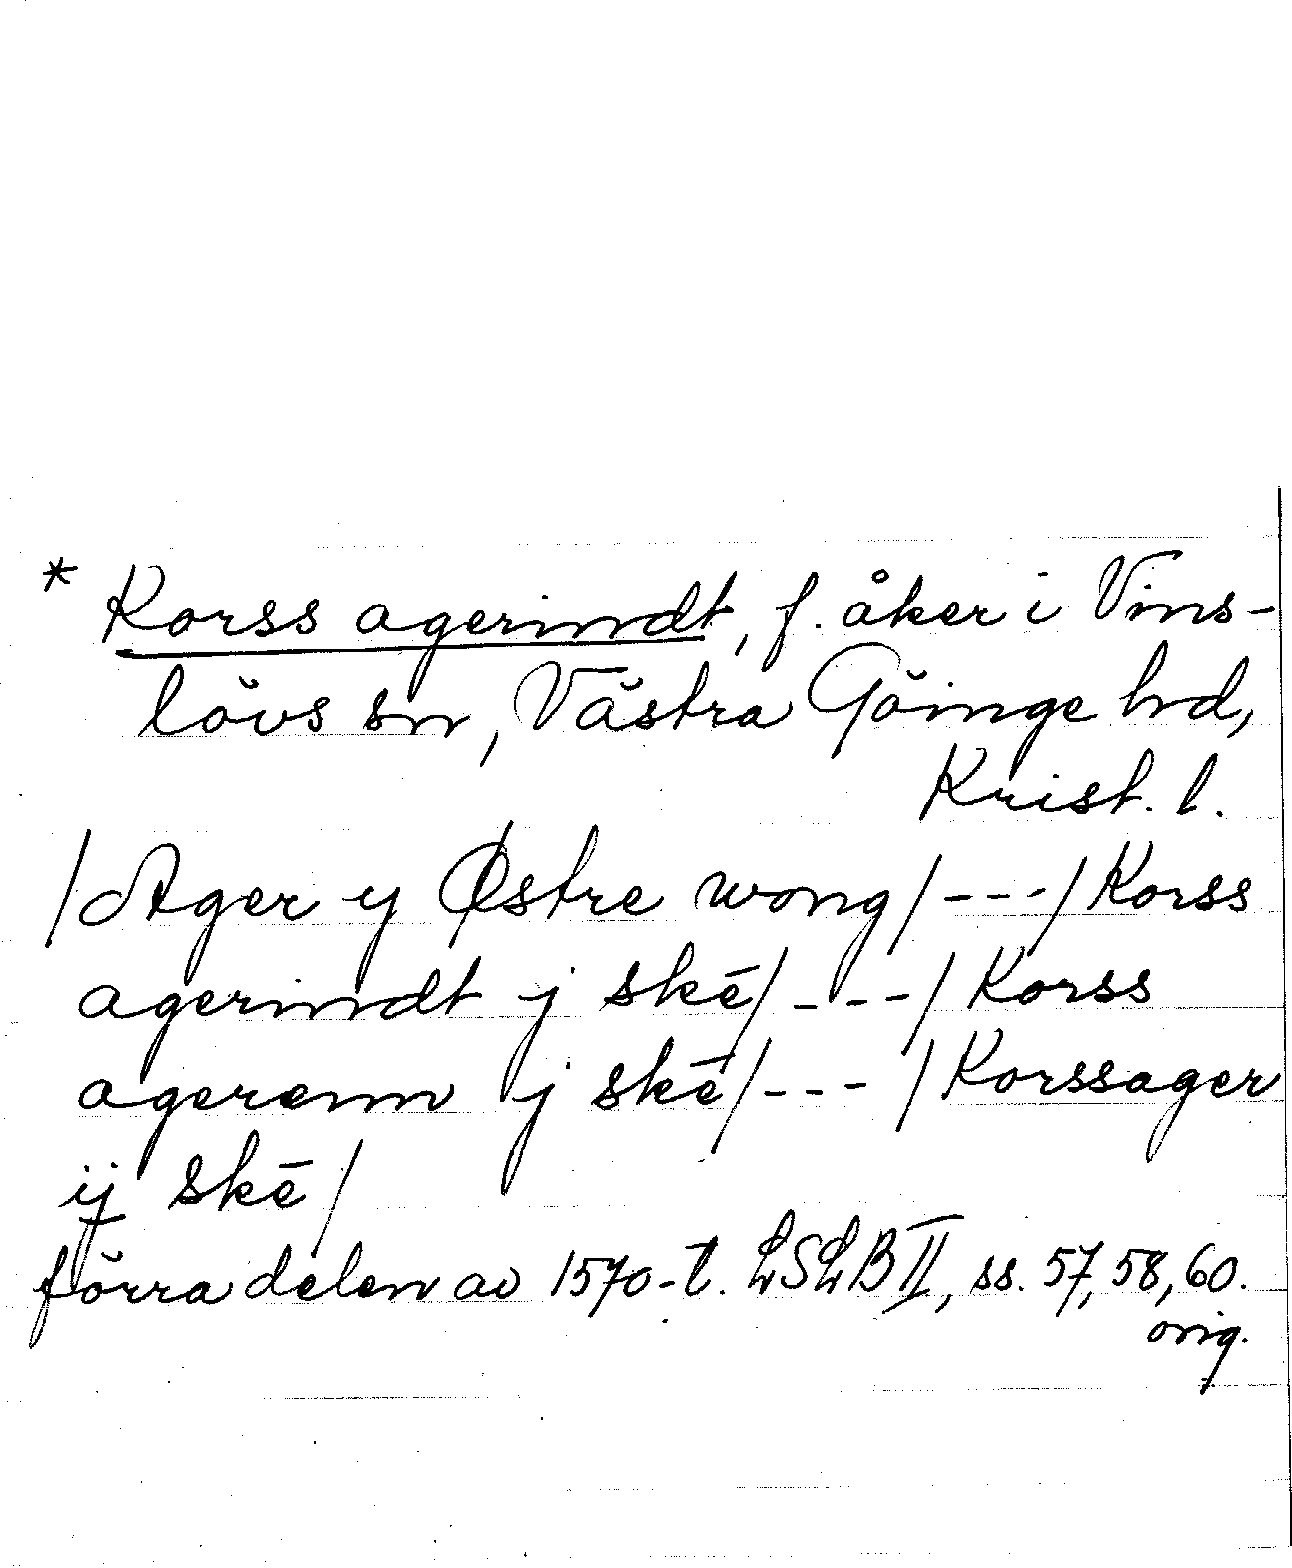 * Korss agerindt, f. åker i Vins-
lövs sn, Västra Göinge hd,
Krist. l.
/Ager y Østre wong/---/Korss
agerindt j skē/---/Korss
agerenn j skē/---/Korssager
ij skē/
förra delen av 1570-t. LSLB II, ss. 57, 58, 60.
orig.